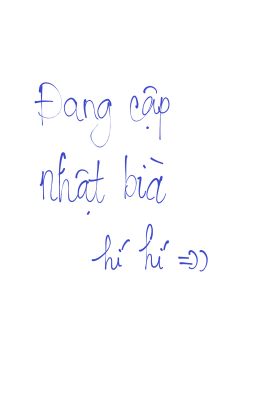 Đang cập
nhật bià
hí hí =))